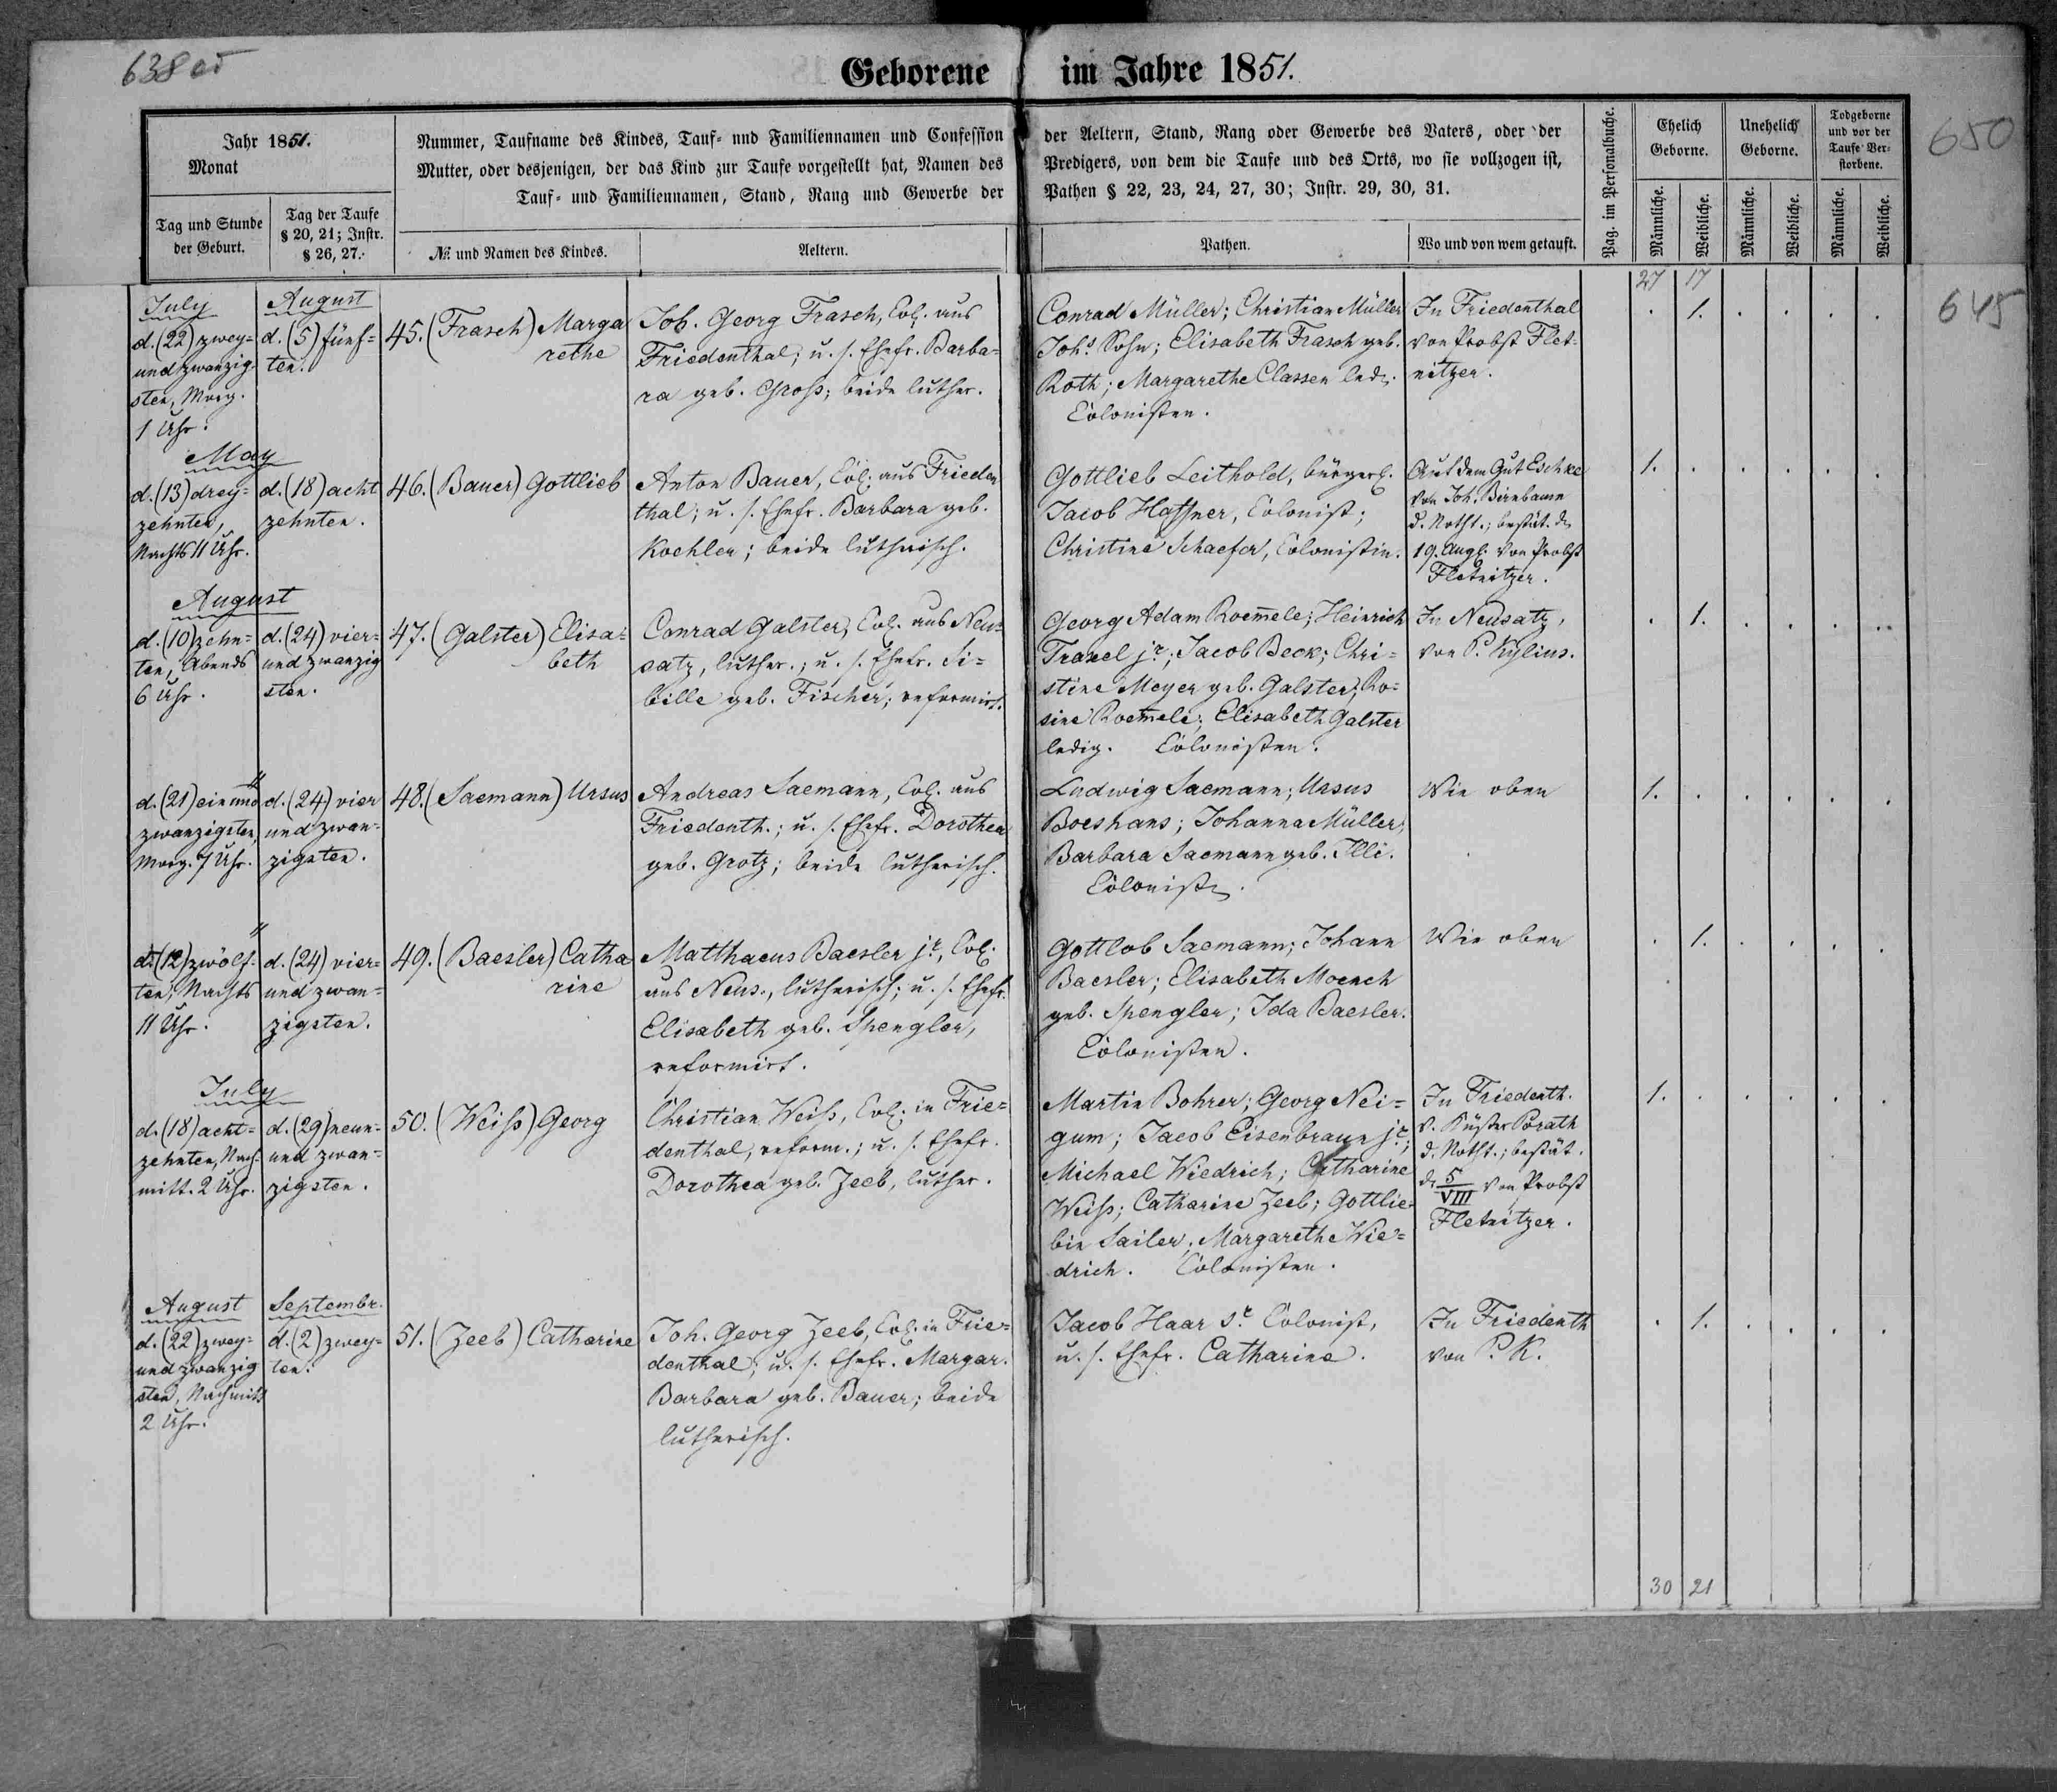 638 od
Geborene im Jahre 1851.
650
645
Jahr 1851.
Monat
Tag und Stunde
der Geburt.
Tag der Taufe
§ 20, 21; Instr.
§ 26, 27.
Nummer, Taufname des Kindes, Tauf- und Familiennamen und Confession der Aeltern, Stand, Rang oder Gewerbe des Vaters, oder der
Mutter, oder desjenigen, der das Kind zur Taufe vorgestellt hat, Namen des Predigers, von dem die Taufe und des Orts, wo sie vollzogen ist,
Tauf- und Familiennamen, Stand, Rang und Gewerbe der Pathen § 22, 23, 24, 27, 30; Instr. 29, 30, 31.
№ und Namen des Kindes.
Aeltern.
Pathen.
Wo und von wem getauft.
Pag. im Personalbuche.
Ehelich
Geborne.
Unehelich
Geborne.
Todgeborne
und vor der
Taufe Ver-
storbene.
Männliche.
Weibliche.
Männliche.
Weibliche.
Männliche.
Weibliche.
27 17
July
d. (22) zwey-
und zwanzig-
sten, Morg.
1 Uhr.
August
d. (5) fünf-
ten.
45. (Frasch) Marga
rethe
Joh. Georg Frasch, Col. aus
Friedenthal; u. s. Ehefr. Barba-
ra geb. Gross; beide luther.
Conrad Müller; Christian Müller
Joh.s Sohn; Elisabeth Frasch geb.
Roth; Margarethe Classen led.
Colonisten.
In Friedenthal
von Probst Flet-
nitzer.
. 1. . . . .
May
d. (13) drey-
zehnten,
Nachts 11 Uhr.
d. (18) acht
zehnten.
46. (Bauer) Gottlieb
Anton Bauer, Col. aus Frieden
thal; u. s. Ehefr. Barbara geb.
Koehler; beide lutherisch.
Gottlieb Leithold, bürgerl.
Jacob Haffner, Colonist;
Christine Schaefer, Colonistin.
Auf dem Gut Eschke
von Joh. Birnbaum
d. Notht.; bestät. d.
19. Aug. von Probst
Fletnitzer.
1. . . . . .
August
d. (10) zehn-
ten, Abends
6 Uhr.
d. (24) vier-
und zwanzig
sten.
47. (Galster) Elisa-
beth
Conrad Galster, Col. aus Neu-
satz, luther.; u. s. Ehefr. Si-
bille geb. Fischer, reformirt.
Georg Adam Roemele; Heinrich
Traxel jr.; Jacob Beck; Chri-
stine Meyer geb. Galster; Ro-
sine Roemele; Elisabeth Galster
ledig. Colonisten.
In Neusatz,
von P. Kylius.
. 1. . . . .
"
d. (21) ein und
zwanzigsten,
Morg. 7 Uhr.
d. (24) vier
und zwan-
zigsten.
48. (Saemann) Ursus
Andreas Saemann, Col. aus
Friedenth.; u. s. Ehefr. Dorothea
geb. Grotz; beide lutherisch.
Ludwig Saemann; Ursus
Boeshans; Johanna Müller;
Barbara Saemann geb. Illi.
Colonist.
Wie oben
1. . . . . .
"
d. (12) zwölf-
ten, Nachts
11 Uhr.
d. (24) vier-
und zwan-
zigsten.
49. (Baesler) Catha
rine
Matthaeus Baesler jr., Col.
aus Neus., lutherisch; u. s. Ehefr.
Elisabeth geb. Spengler,
reformirt.
Gottlob Saemann; Johann
Baesler; Elisabeth Moench
geb. Spengler; Ida Baesler.
Colonisten.
Wie oben
. 1. . . . .
July
d. (18) acht-
zehnten, Nach-
mitt. 2 Uhr.
d. (29) neun-
und zwan-
zigsten.
50. (Weiss) Georg
Christian Weiss, Col. in Frie-
denthal, reform.; u. s. Ehefr.
Dorothea geb. Zeeb, luther.
Martin Bohrer; Georg Nei-
gum; Jacob Eisenbraun jr.;
Michael Wiedrich; Catharine
Weiss; Catharine Zeeb; Gottlie-
bin Sailer; Margarethe Wie-
drich. Colonisten.
In Friedenth.
v. Küster Porath
d. Notht.; bestät.
d. 5/VIII von Probst
Fletnitzer.
1. . . . . .
August
d. (22) zwey-
und zwanzig
sten, Nachmitt
2 Uhr.
Septembr.
d. (2) zwey-
ten.
51. (Zeeb) Catharine
Joh. Georg Zeeb, Col. in Frie-
denthal; u. s. Ehefr. Margar.
Barbara geb. Bauer; beide
lutherisch.
Jacob Haar sr. Colonist,
u. s. Ehefr. Catharine.
In Friedenth
von P. K.
. 1. . . . .
30 21